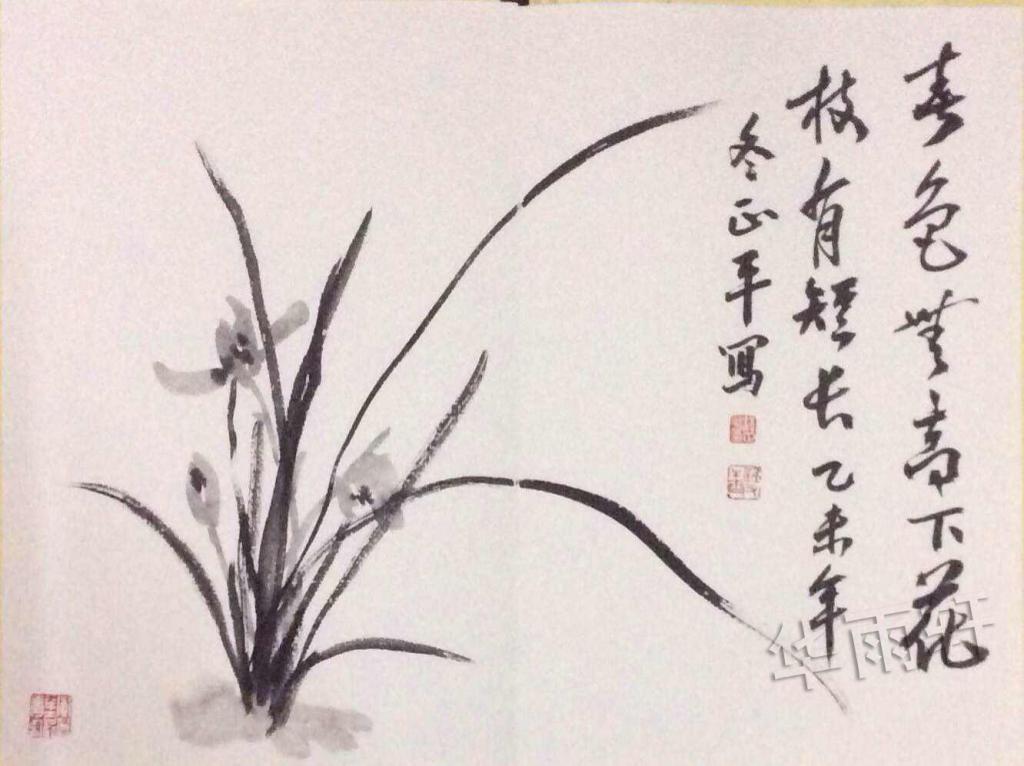 春色無高下花
枝有短长乙未年
冬正平寫
华雨